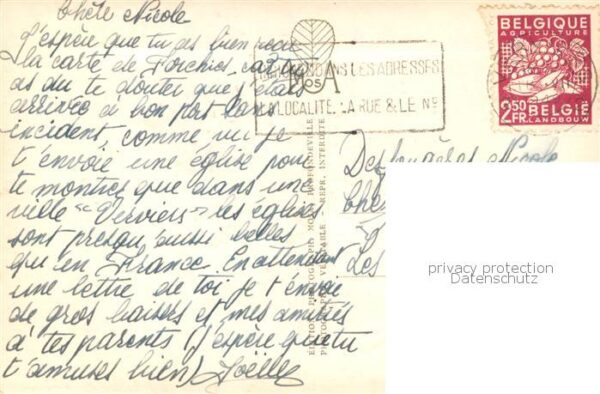 Chère Nicole
J'espère que tu as bien reçu
la carte de Forchies, car tu
as du te douter que j'étais
arrivée à bon port sans
incident comme vu je
t'envoie une église pour
te montrer que dans une
ville "Verviers" les églises
sont presqu'aussi belles
qu'en France. En attendant
une lettre de toi je t'envoie
de gros baisers et mes amitiés
à tes parents (J'espère que tu
t'amuses bien) Joëlle
DANS LES ADRESSES
LOCALITE, LA RUE & LE No
BELGIQUE
AGRICULTURE
2,50
FR.
BELGIË
LANDBOUW
Nicole
Les
privacy protection
Datenschutz